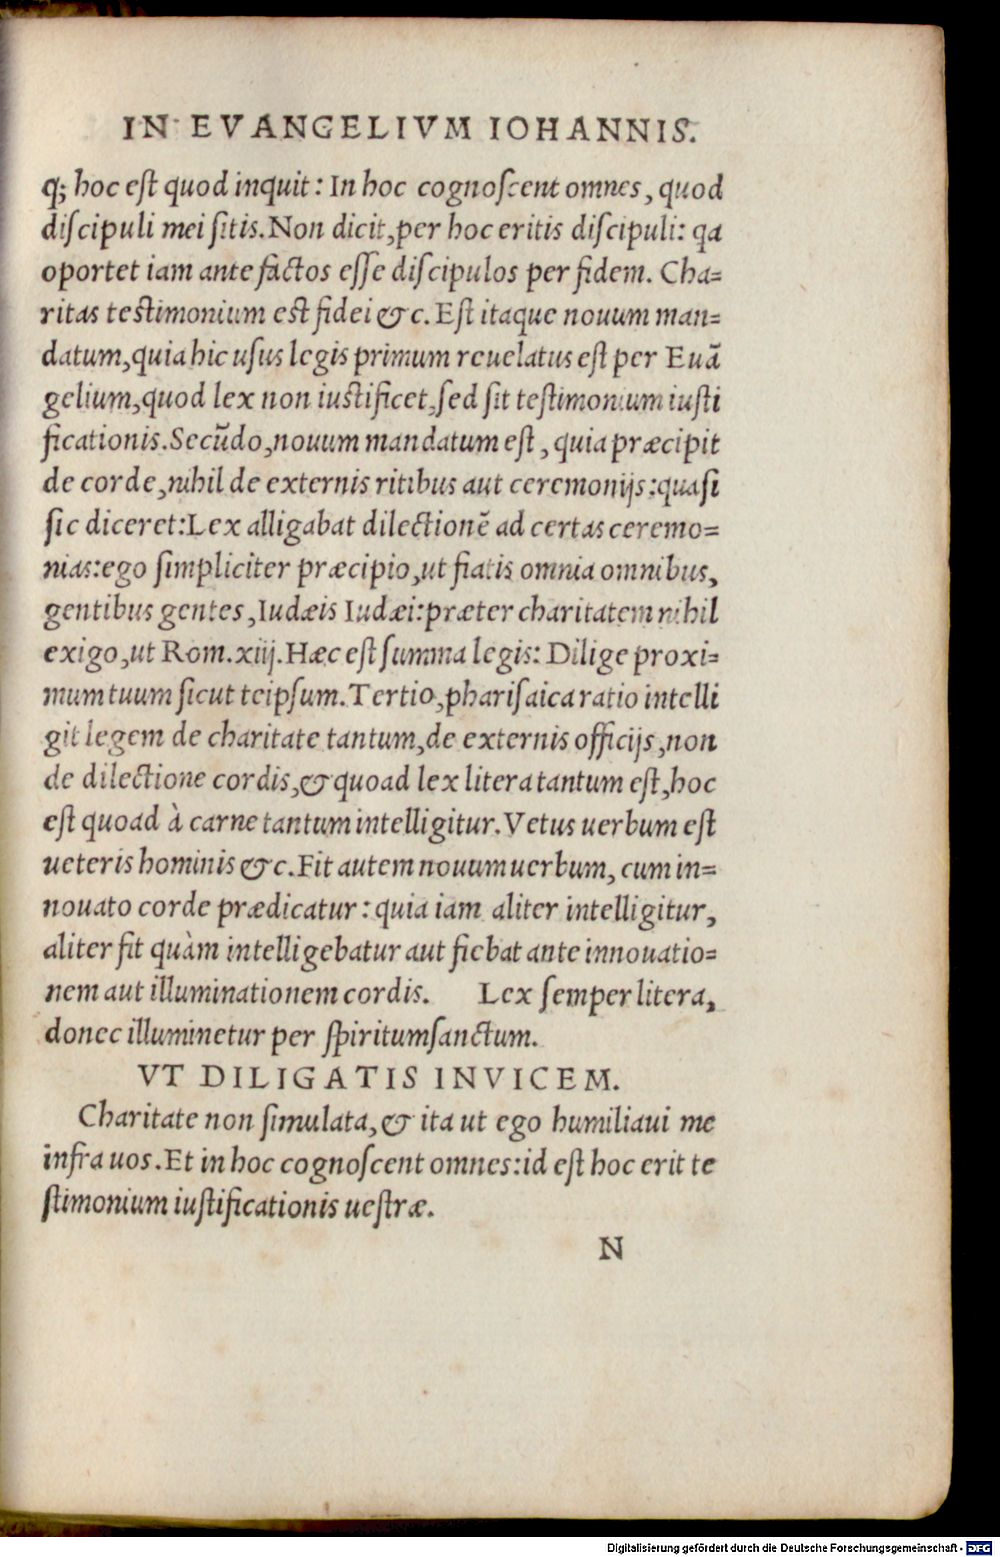 IN EVANGELIVM IOHANNIS.
q; hoc est quod inquit: In hoc cognoscent omnes, quod
discipuli mei sitis. Non dicit, per hoc eritis discipuli: qa
oportet iam ante factos esse discipulos per fidem. Cha=
ritas testimonium est fidei &c. Est itaque nouum man=
datum, quia hic usus legis primum reuelatus est per Euã
gelium, quod lex non iustificet, sed sit testimonium iusti
ficationis. Secũdo, nouum mandatum est, quia præcipit
de corde, nihil de externis ritibus aut ceremonijs: quasi
sic diceret: Lex alligabat dilectionẽ ad certas ceremo=
nias: ego simpliciter præcipio, ut fiatis omnia omnibus,
gentibus gentes, Iudæis Iudæi: præter charitatem nihil
exigo, ut Rom. xiij. Hæc est summa legis: Dilige proxi=
mum tuum sicut teipsum. Tertio, pharisaica ratio intelli
git legem de charitate tantum, de externis officijs, non
de dilectione cordis, & quoad lex litera tantum est, hoc
est quoad à carne tantum intelligitur. Vetus uerbum est
ueteris hominis &c. Fit autem nouum uerbum, cum in=
nouato corde prædicatur: quia iam aliter intelligitur,
aliter fit quàm intelligebatur aut fiebat ante innouatio=
nem aut illuminationem cordis. Lex semper litera,
donec illuminetur per spiritumsanctum.
VT DILIGATIS INVICEM.
Charitate non simulata, & ita ut ego humiliaui me
infra uos. Et in hoc cognoscent omnes: id est hoc erit te
stimonium iustificationis uestræ.
N
Digitalisierung gefördert durch die Deutsche Forschungsgemeinschaft - DFG